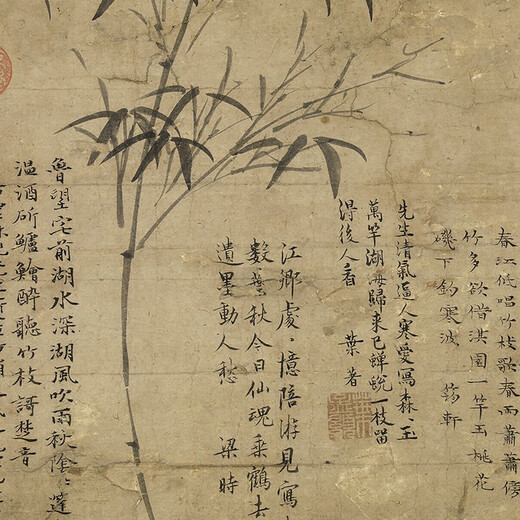 春江低唱竹枝歌春雨蕭蕭
竹多欲借淇園一竿玉桃花
磯下釣寒波 軒
先生清氣逼人寒愛寫森〻玉
萬竿湖海歸來已蟬蛻一枝留
得後人看 葉著
江鄉處〻憶陪游見寫
數葉秋今日仙魂乘鶴去
遺墨動人愁 梁時
魯望宅前湖水深湖風吹雨秋陰〻篷
溫酒斫鱸鱠醉聽竹枝謌楚音